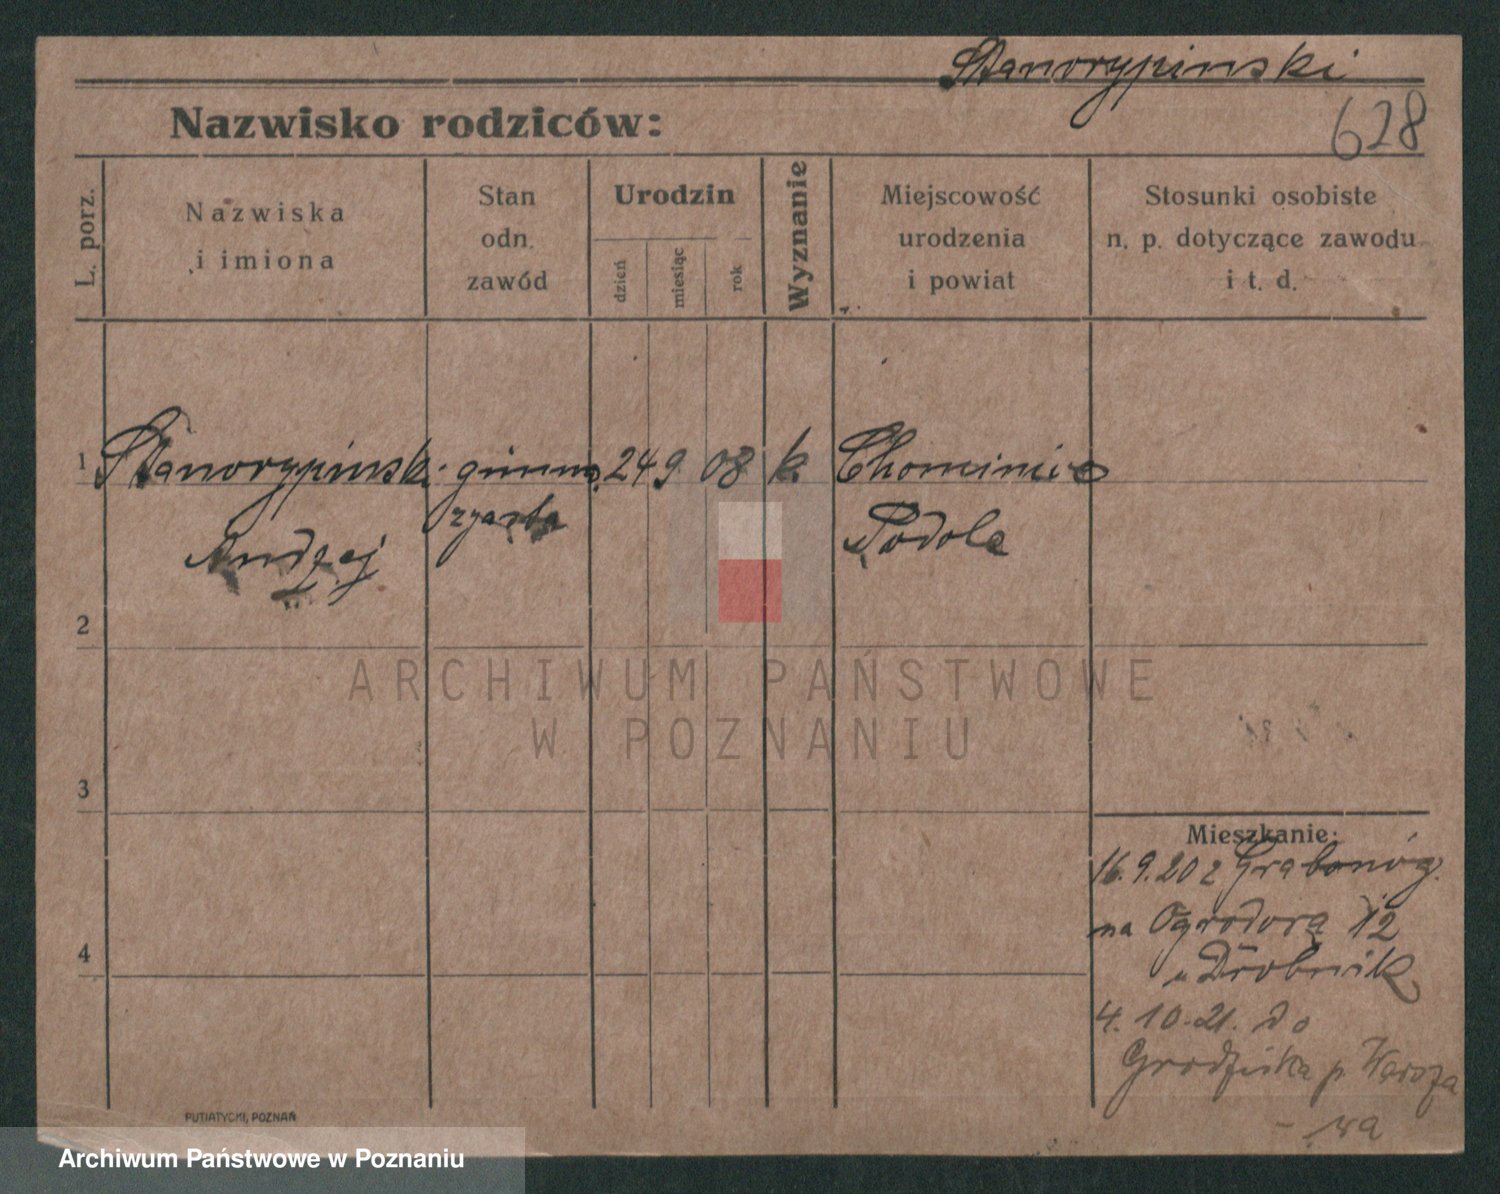 Stanorypinski
628
Nazwisko rodziców:
L. porz.
Nazwiska
i imiona
Stan
odn.
zawód
Urodzin
dzień
miesiąc
rok
Wyznanie
Miejscowość
urodzenia
i powiat
Stosunki osobiste
n. p. dotyczące zawodu
i t. d.
1 Stanorypinski gimna 24 9 08 k. Chominie
zyasta Podole
Andrzej
2
ARCHIWUM PAŃSTWOWE
W POZNANIU
3
Mieszkanie:
16.9.20 z Grabonóg.
na Ogrodora 12
u Drobnik
4
4.10.21. do
Grodziska p. Warsza
- wa
PUTIATYCKI, POZNAŃ
Archiwum Państwowe w Poznaniu